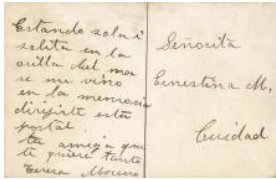 Estando sola i
solita en la
orilla del mar
se me vino
en la memoria
dirijirte esta
postal.
tu amiga que
te quiere tanto
Teresa Moreno
Señorita
Ernestina M.
Cuidad